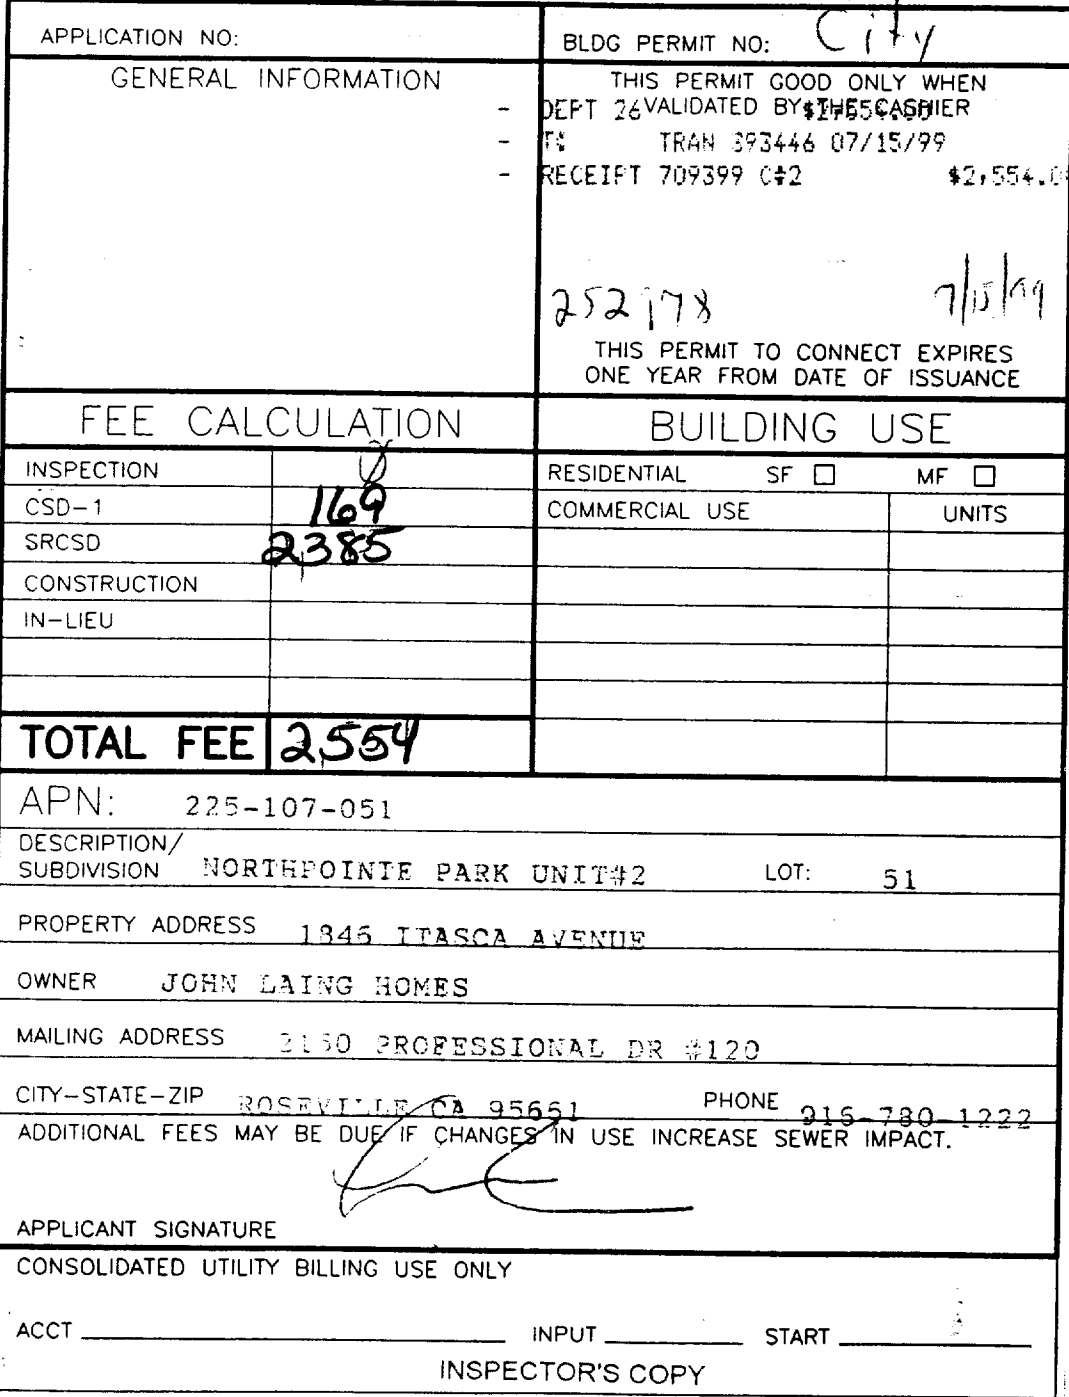 APPLICATION NO:
BLDG PERMIT NO: City
GENERAL INFORMATION
THIS PERMIT GOOD ONLY WHEN
VALIDATED BY THE CASHIER
DEPT 26
TRAN 393446 07/15/99
RECEIPT 709399 C#2 $2,554.0
7/15/99
THIS PERMIT TO CONNECT EXPIRES
ONE YEAR FROM DATE OF ISSUANCE
FEE CALCULATION
BUILDING USE
INSPECTION
RESIDENTIAL SF ☐ MF ☐
CSD-1 169
COMMERCIAL USE UNITS
SRCSD 2385
CONSTRUCTION
IN-LIEU
TOTAL FEE 2,554
APN: 225-107-051
DESCRIPTION/
SUBDIVISION NORTHPOINTE PARK UNIT#2 LOT: 51
PROPERTY ADDRESS 1846 ITASCA AVENUE
OWNER JOHN LAING HOMES
MAILING ADDRESS PROFESSIONAL DR #120
CITY-STATE-ZIP ROSEVILLE CA 95661 PHONE 916-780-1222
ADDITIONAL FEES MAY BE DUE IF CHANGES IN USE INCREASE SEWER IMPACT.
APPLICANT SIGNATURE
CONSOLIDATED UTILITY BILLING USE ONLY
ACCT INPUT START
INSPECTOR'S COPY